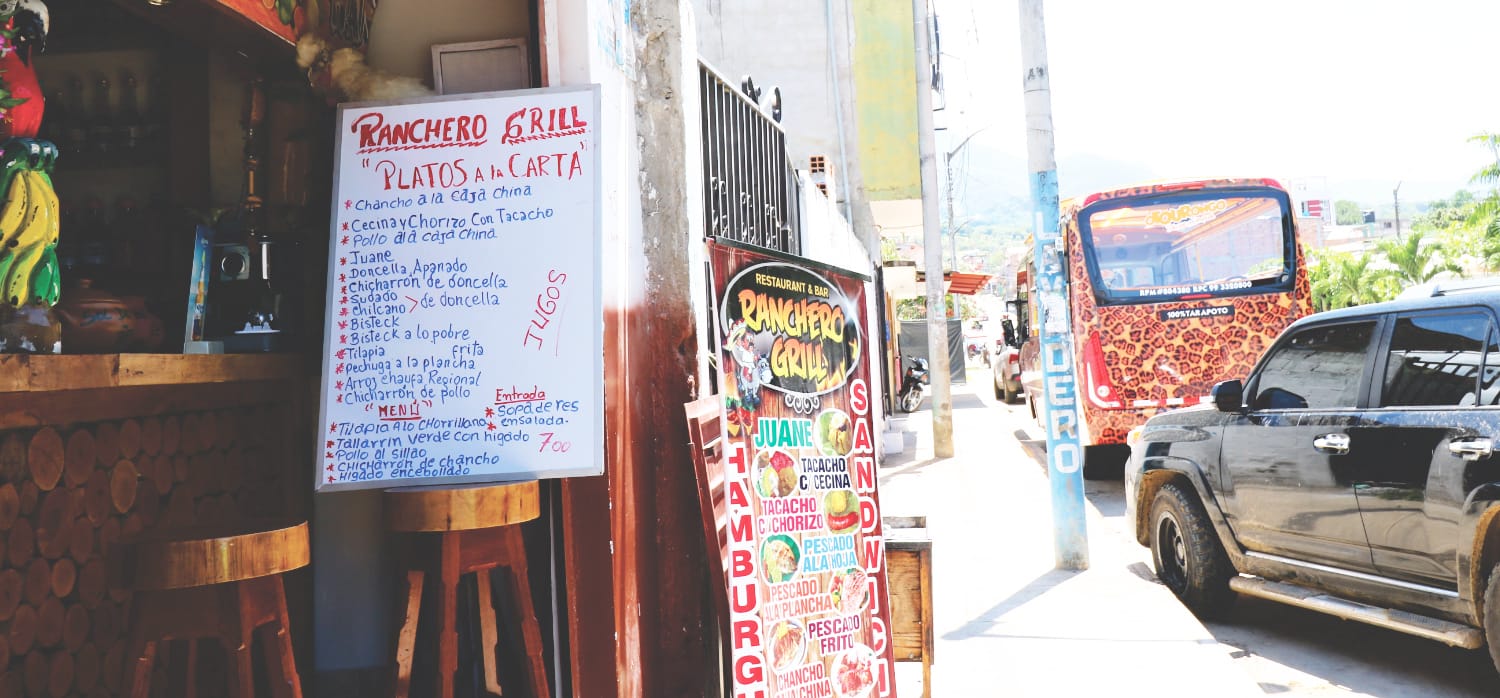 RANCHERO GRILL
"PLATOS A la CARTA"
* Chancho a la caja china
* Cecina y Chorizo Con Tacacho
* Pollo ala caja china
* Juane
* Doncella Apanado
* Chicharrón de doncella
* Sudado
* chilcano > de doncella
* Bisteck
* Bisteck a lo pobre
* Tilapia frita
* Pechuga a la plancha
* Arros chaufa Regional
* Chicharrón de pollo
JUGOS
"MENÚ"
* Tilapia A lo Chorrillano
* Tallarin verde con higado
* Pollo al sillao
* chicharrón de chancho
* Higado encebollado
Entrada
* Sopa de res
* ensalada.
700
RESTAURANT & BAR
RANCHERO
GRILL
JUANE
TACACHO
C/CECINA
TACACHO
C/CHORIZO
PESCADO
A LA HOJA
PESCADO
A LA PLANCHA
PESCADO
FRITO
CHANCHO
A LA CAJA CHINA
HAMBURG
SANDWIC
DERO
100% TARAPOTO